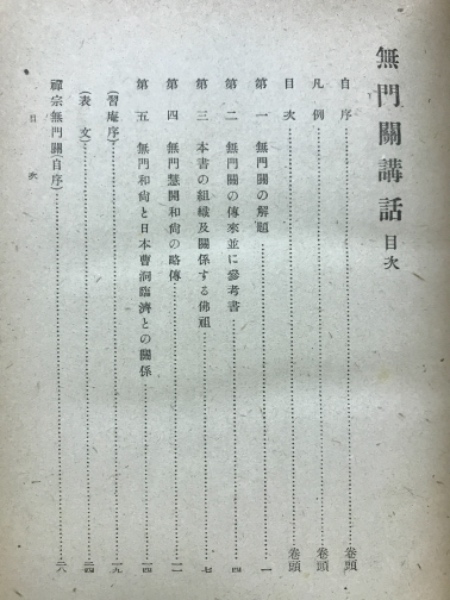 無門關講話 目次
自序……卷頭
凡例……卷頭
目次……卷頭
第一 無門關の解題……一
第二 無門關の傳來並に參考書……四
第三 本書の組織及關係する佛祖……七
第四 無門慧開和尙の略傳……一一
第五 無門和尙と日本曹洞臨濟との關係……一四
(習庵序)……一九
(表文)……二四
禪宗無門關(自序)……二六
目次 一